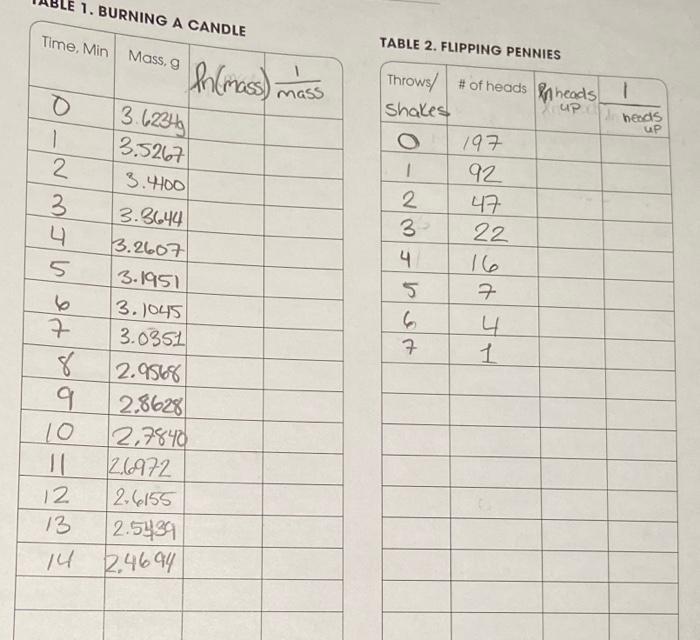 TABLE 1. BURNING A CANDLE
Time, Min Mass, g ln(mass) 1/mass
0 3.6234g
1 3.5267
2 3.4100
3 3.3644
4 3.2607
5 3.1951
6 3.1045
7 3.0351
8 2.9568
9 2.8628
10 2,7840
11 2.6972
12 2.6155
13 2.5439
14 2.4694
TABLE 2. FLIPPING PENNIES
Throws/ Shakes # of heads ln heads up 1/heads up
0 197
1 92
2 47
3 22
4 16
5 7
6 4
7 1